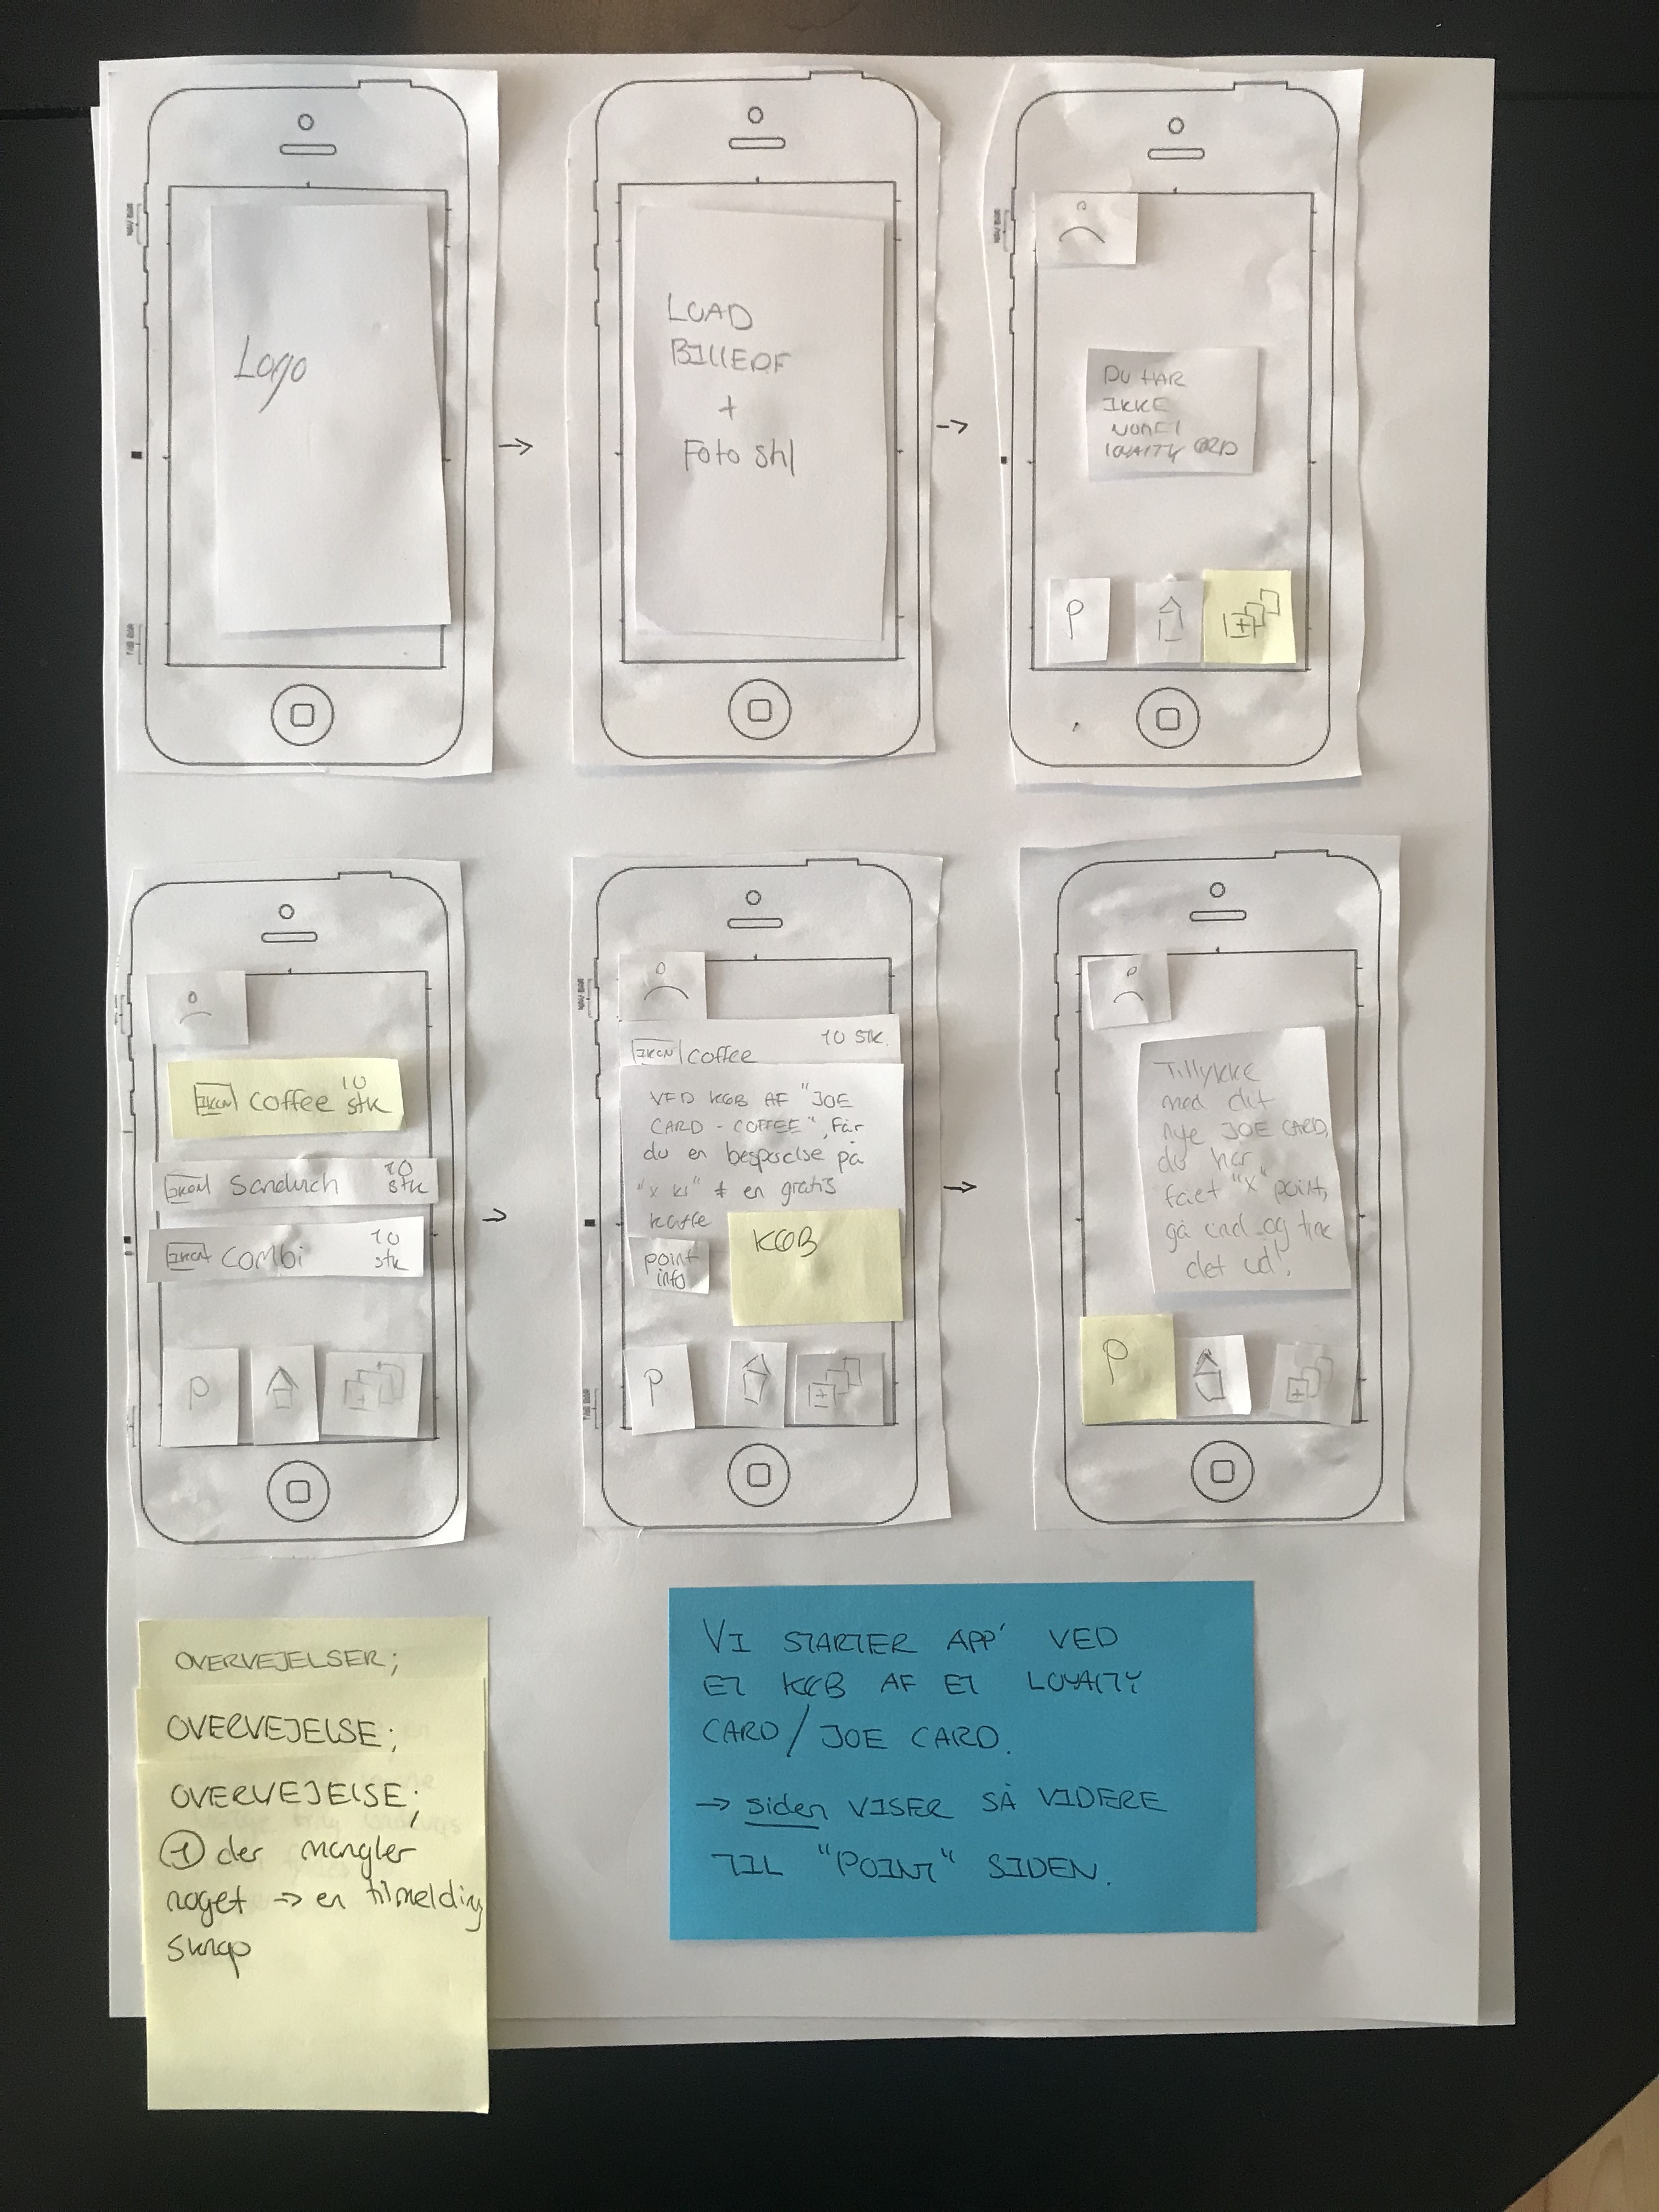 Logo
LOAD
BILLEDE
+
Foto Stil
DU HAR
IKKE
NOGET
LOYALTY CARD
P
IKON coffee 10 stk
IKON Sandwich 10 stk
IKON combi 10 stk
P
IKON coffee 10 STK.
VED KØB AF "JOE
CARD - COFFEE", Får
du en besparelse på
"x kr" + en gratis
kaffe
KØB
point info
P
Tillykke
med dit
nye JOE CARD,
du har
fået "X" point,
gå ind og tjek
det ud!
P
OVERVEJELSER;
OVERVEJELSE;
OVERVEJELSE;
1 der mangler
noget → en tilmelding
VI STARTER APP' VED
ET KØB AF ET LOYALTY
CARD/JOE CARD.
→ siden VISER SÅ VIDERE
TIL "POINT" SIDEN.